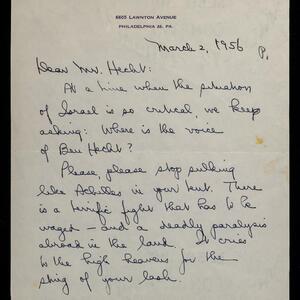 6605 LAWNTON AVENUE
PHILADELPHIA 26, PA.
March 2, 1956 P.
Dear Mr. Hecht:
At a time when the situation
of Israel is so critical, we keep
asking: Where is the voice
of Ben Hecht?
Please, please stop sulking
like Achilles in your tent. There
is a terrific fight that has to be
waged – and a deadly paralysis
abroad in the land. It cries
to the high heavens for the
sting of your lash.